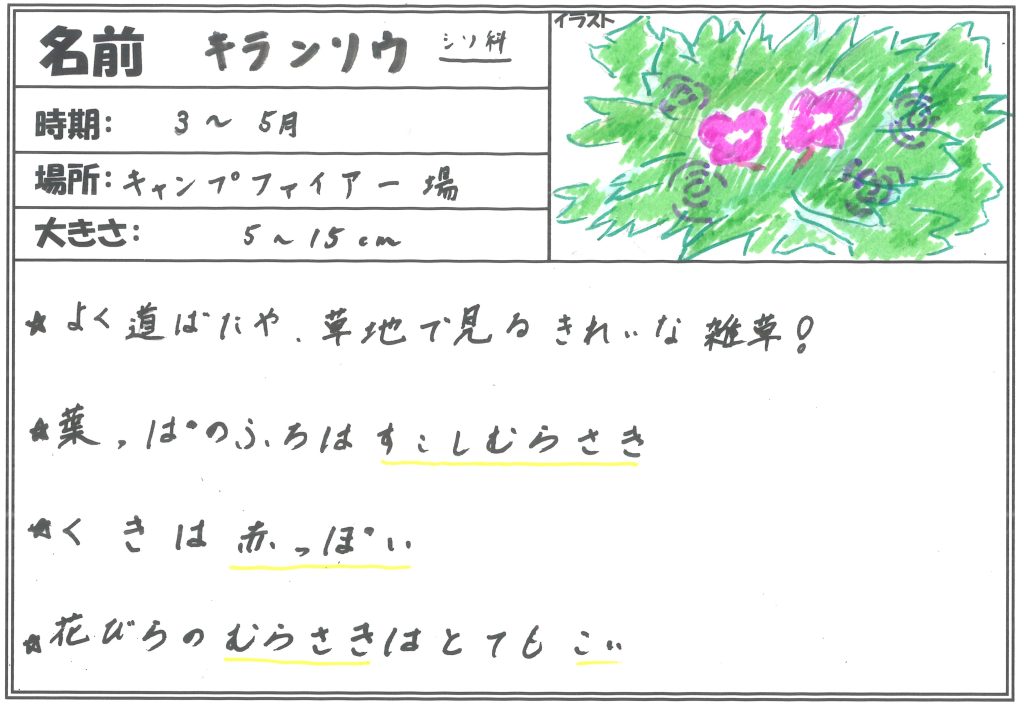 名前 キランソウ シソ科
イラスト
時期: 3～5月
場所: キャンプファイアー場
大きさ: 5～15cm
★よく道ばたや、草地で見るきれいな雑草!
★葉っぱのふちはすこしむらさき
★くきは赤っぽい
★花びらのむらさきはとてもこい